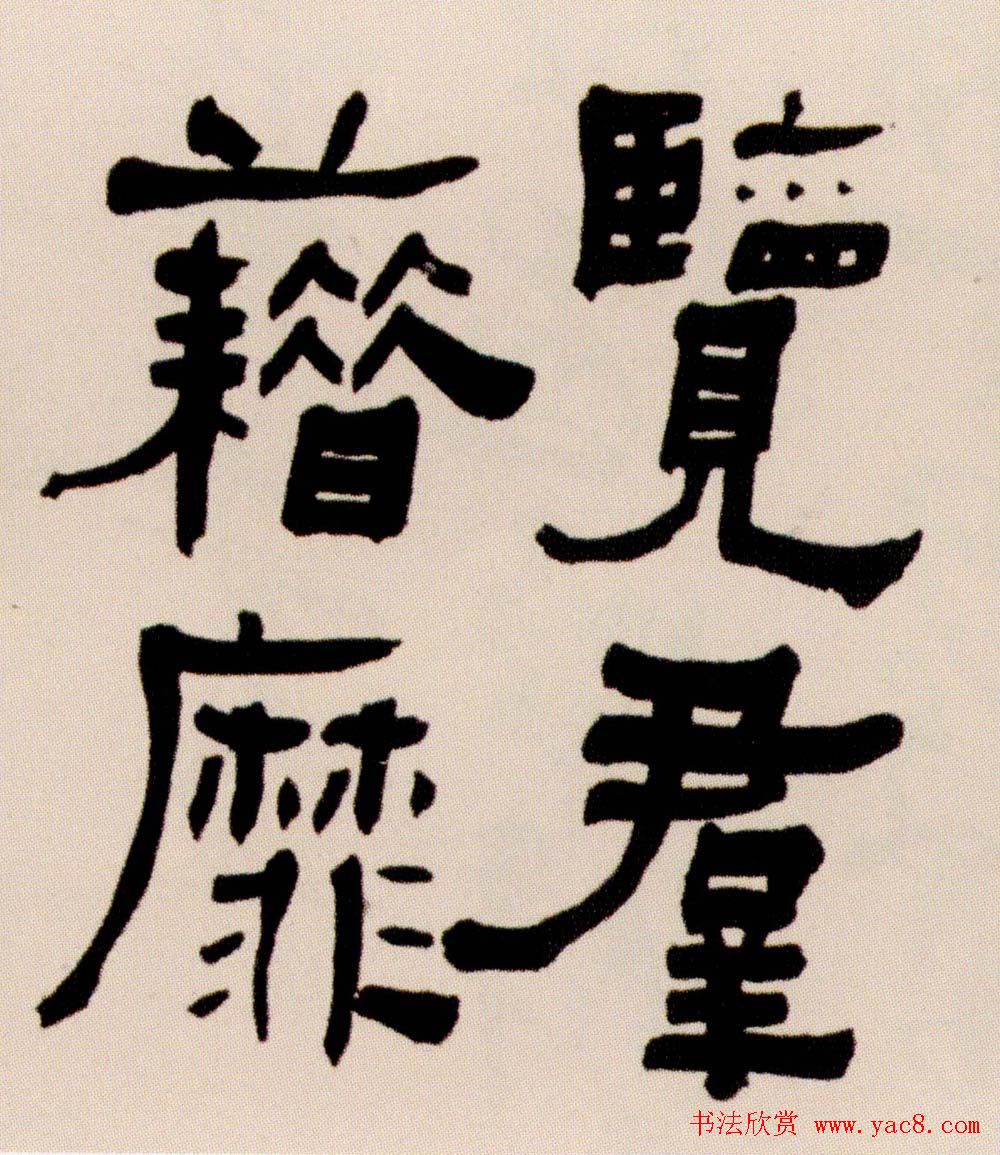 覽羣
藉靡
书法欣赏 www.yac8.com